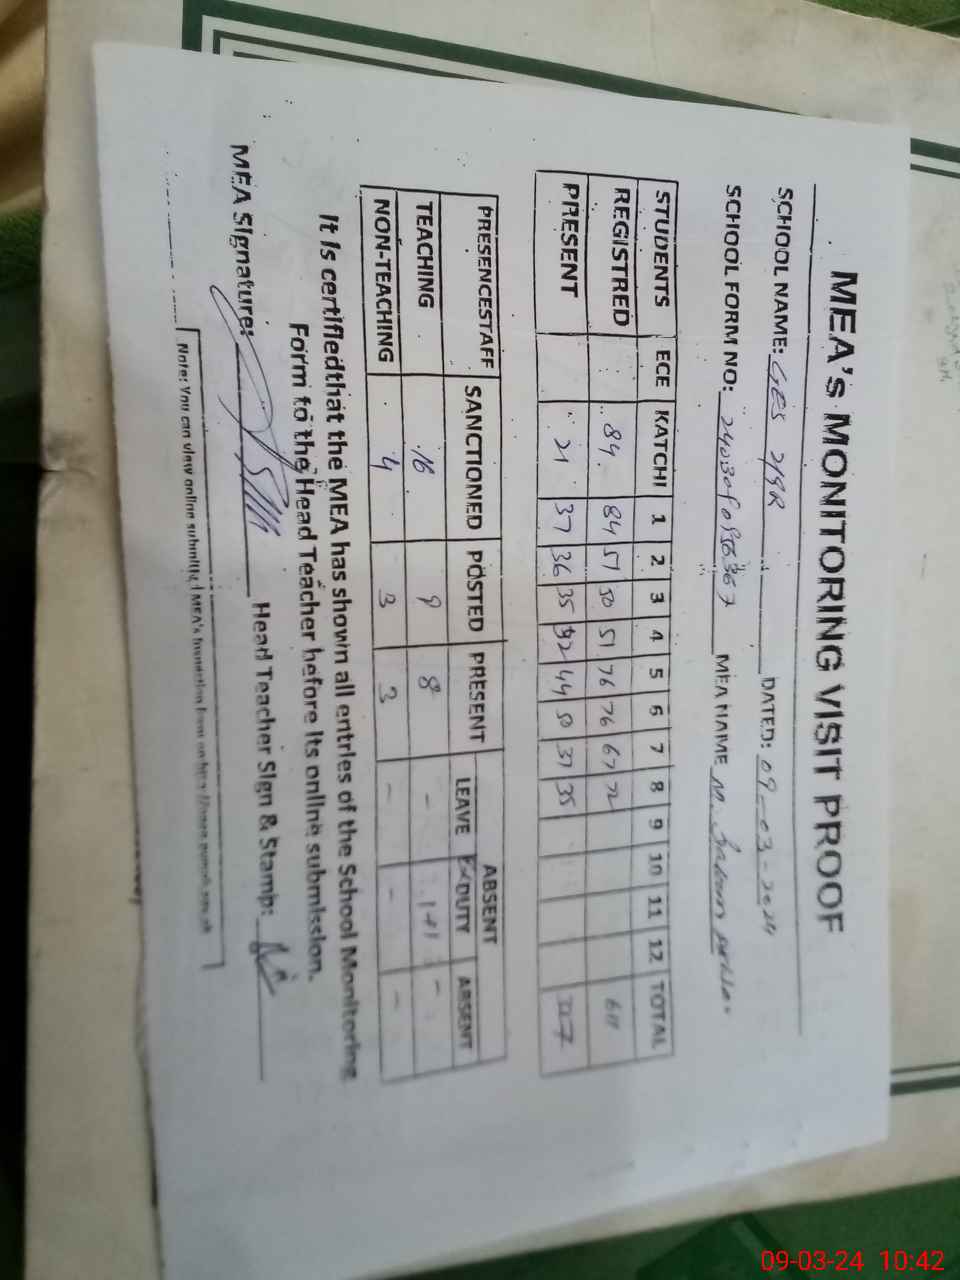 MEA's MONITORING VISIT PROOF
SCHOOL NAME: GES 219R DATED: 09-03-2024
SCHOOL FORM NO: MEA NAME M.
STUDENTS ECE KATCHI 1 2 3 4 5 6 7 8 9 10 11 12 TOTAL
REGISTRED 84 84 57 50 51 76 76 67 72 611
PRESENT 21 37 36 35 32 44 50 37 35 327
PRESENCESTAFF SANCTIONED POSTED PRESENT ABSENT
LEAVE DUTY ABSENT
TEACHING 16 9 8 - 1+1 -
NON-TEACHING 4 3 3 - - -
It is certifiedthat the MEA has shown all entries of the School Monitoring
Form to the Head Teacher before its online submission.
MEA Signature: Head Teacher Sign & Stamp:
Note: You can view online submitted MEA's Inspection Form on
09-03-24 10:42